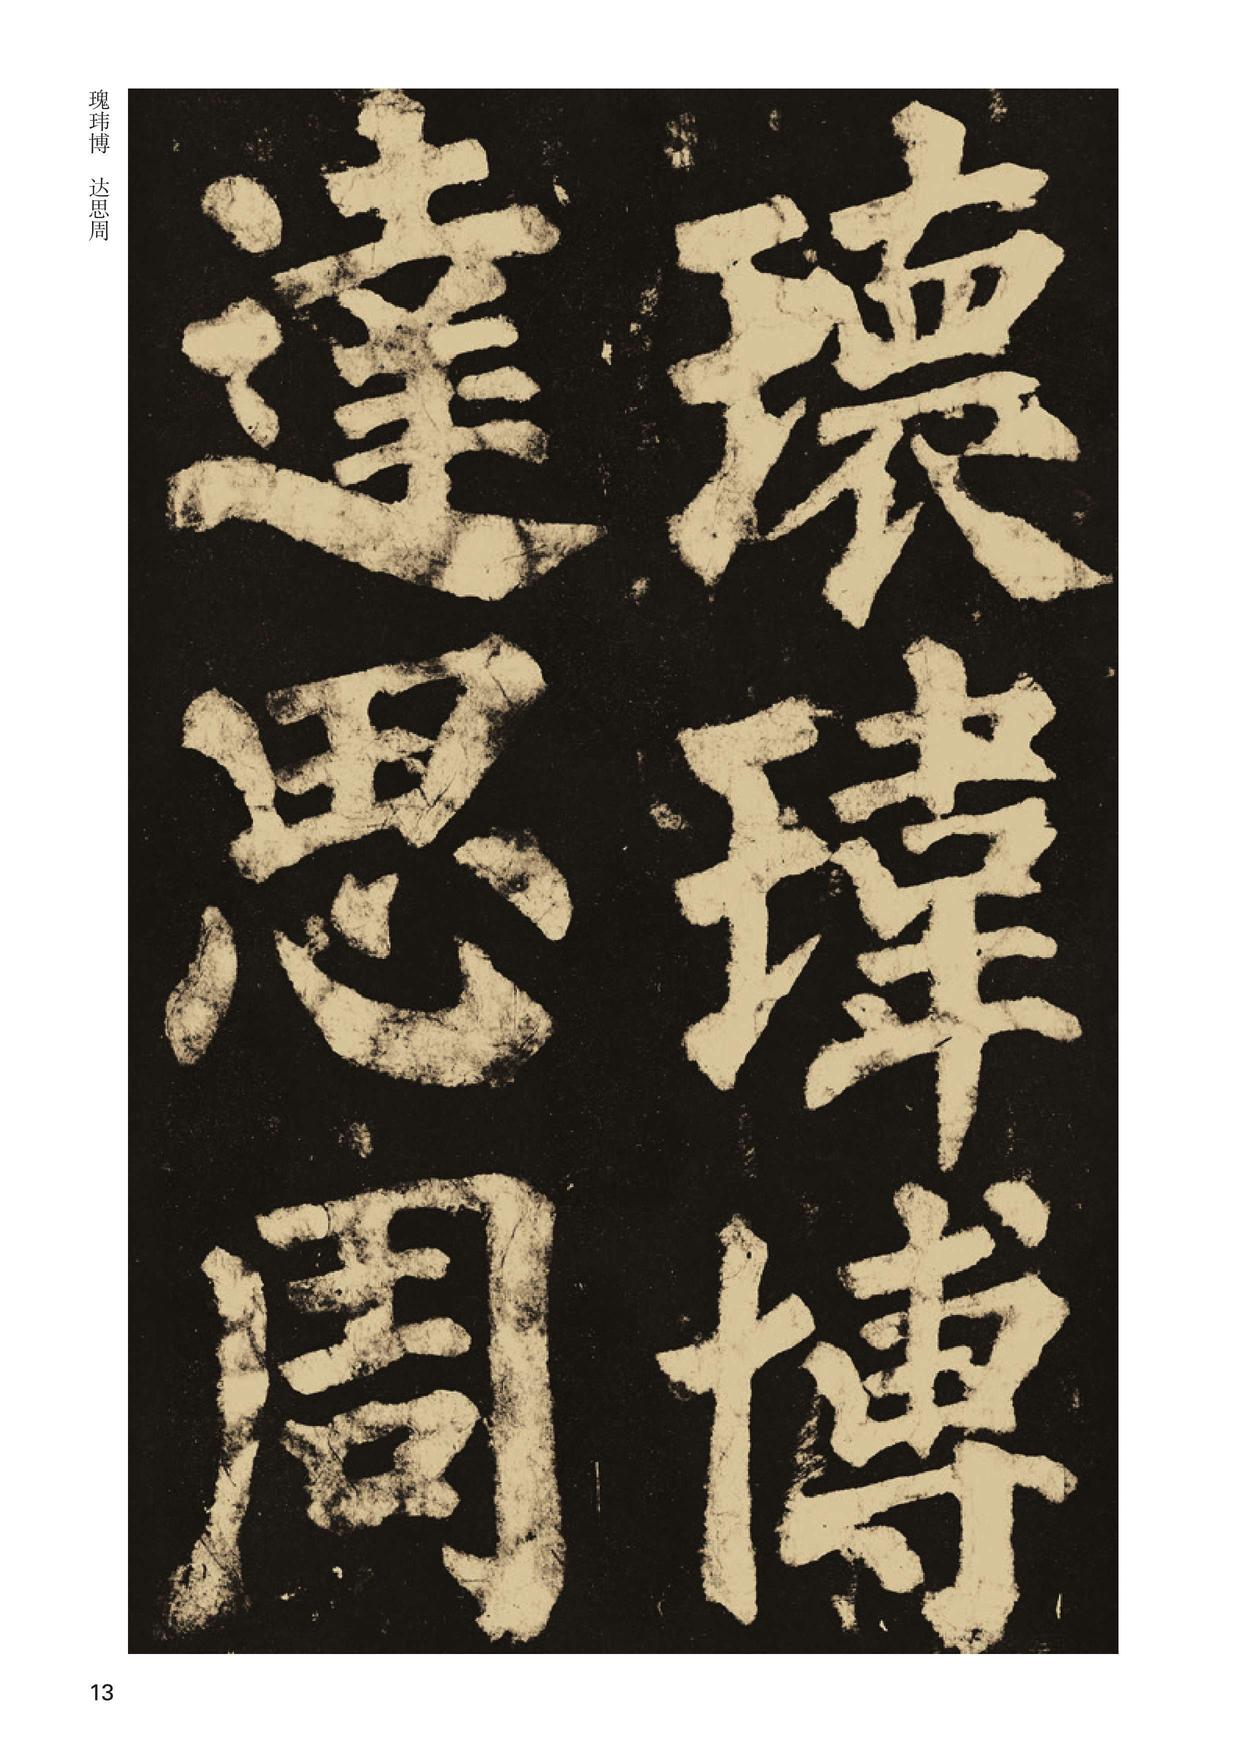 瓌瑋博
達思周
瑰玮博 达思周
13